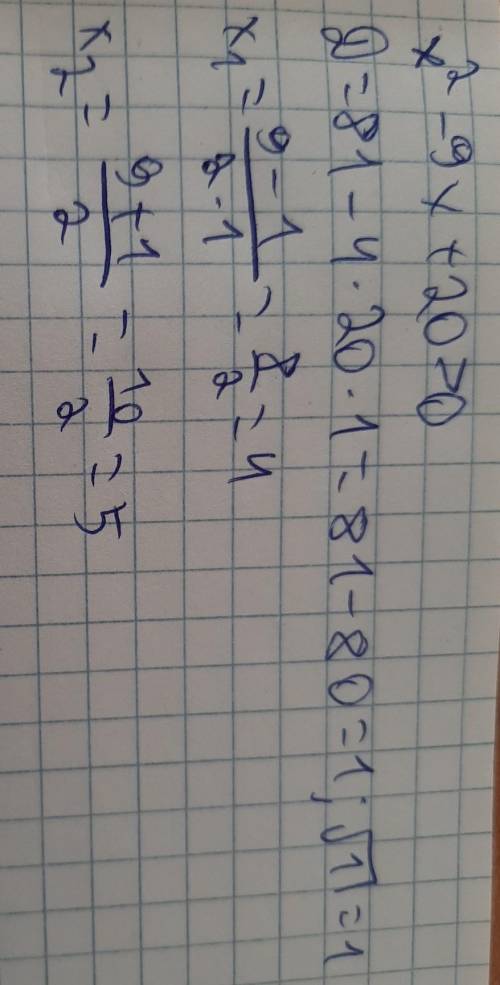 x² - 9x + 20 > 0
D = 81 - 4 · 20 · 1 = 81 - 80 = 1; √1 = 1
x1 = (9 - 1)/(2 · 1) = 8/2 = 4
x2 = (9 + 1)/2 = 10/2 = 5